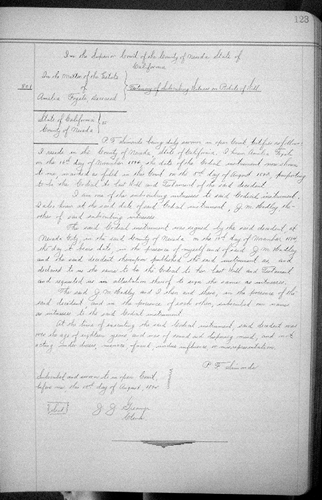 123
In the Superior Court of the County of Nevada State of
California
In the Matter of the Estate
of
Amelia Fogeli, deceased
Testimony of Subscribing Witness on Probate of Will
State of California
County of Nevada ss
P. F. Simonds being duly sworn in open Court, testifies as follows:
I reside in the County of Nevada, State of California. I knew Amelia
on the day of November the date of the Codicil instrument now shown
to me, marked as filed in this Court on the day of August purporting
to be the Codicil to last Will and Testament of the said decedent
I am one of the subscribing witnesses to said Codicil instrument.
I also knew at the said date of said Codicil instrument, J. M. Hadley, the
other of said subscribing witnesses
The said Codicil instrument was signed by the said decedent, at
Nevada City, in the said County of Nevada on the day of November,
the day it bears date, in the presence of myself and of said J. M. Hadley
and the said decedent thereupon published the said instrument as and
declared to us the same to be the Codicil to her last Will and Testament
and requested us in attestation thereof to sign the same as witnesses.
The said J. M. Hadley and I then and there, in the presence of the
said decedent and in the presence of each other, subscribed our names
as witnesses to the said Codicil instrument.
At the time of executing the said Codicil instrument, said decedent was
over the age of eighteen years and was of sound and disposing mind, and not
acting under duress, menace, fraud, undue influence, or misrepresentation.
P. F. Simonds
Subscribed and sworn to in open Court,
before me the day of August,
Seal
Clerk